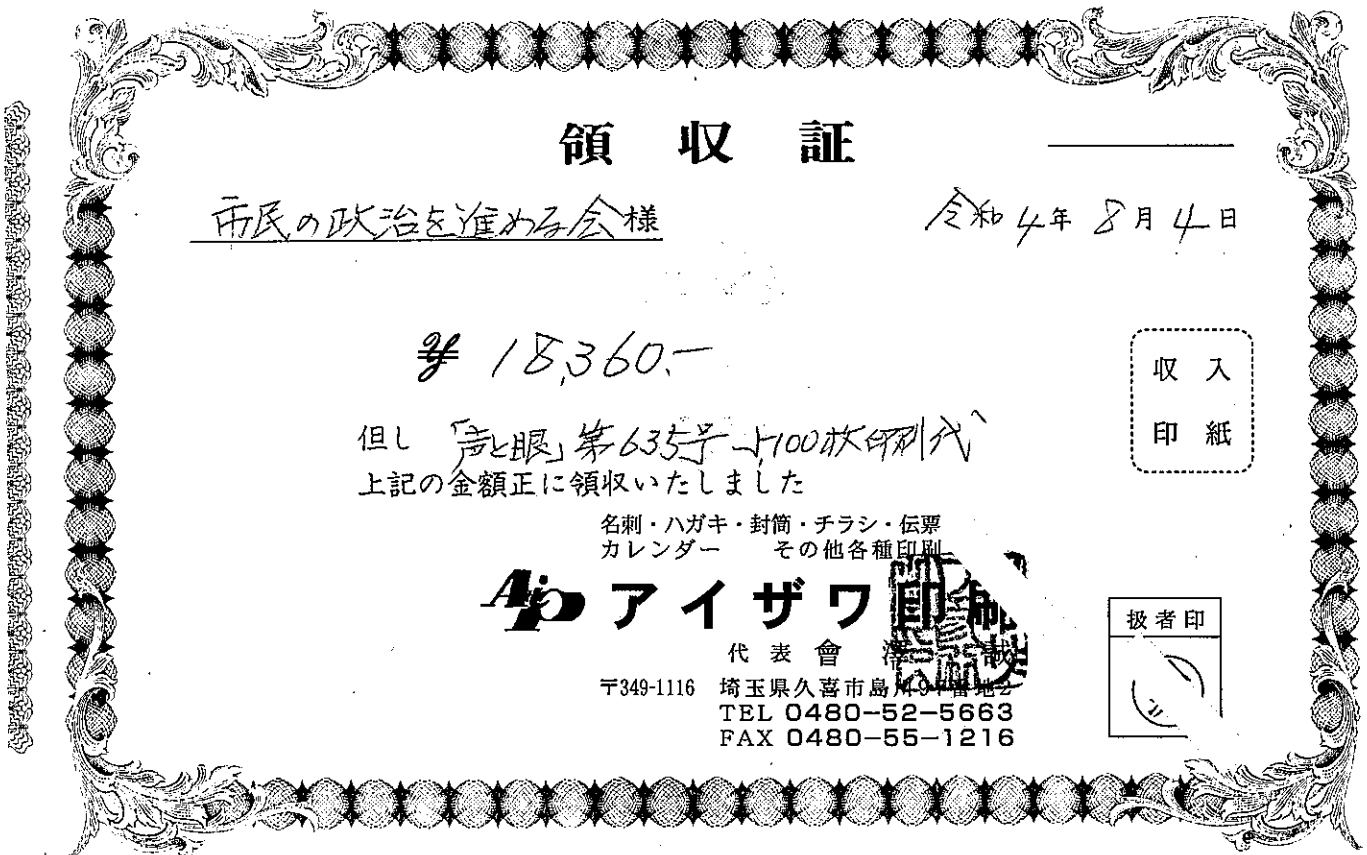 領収証
市民の政治を進める会様
令和4年8月4日
¥ 18,360.-
収入
印紙
但し 「声と眼」第635号 100枚印刷代
上記の金額正に領収いたしました
名刺・ハガキ・封筒・チラシ・伝票
カレンダー その他各種印刷
アイザワ印刷
代表 會澤 誠
〒349-1116 埼玉県久喜市島川97番地2
TEL 0480-52-5663
FAX 0480-55-1216
扱者印